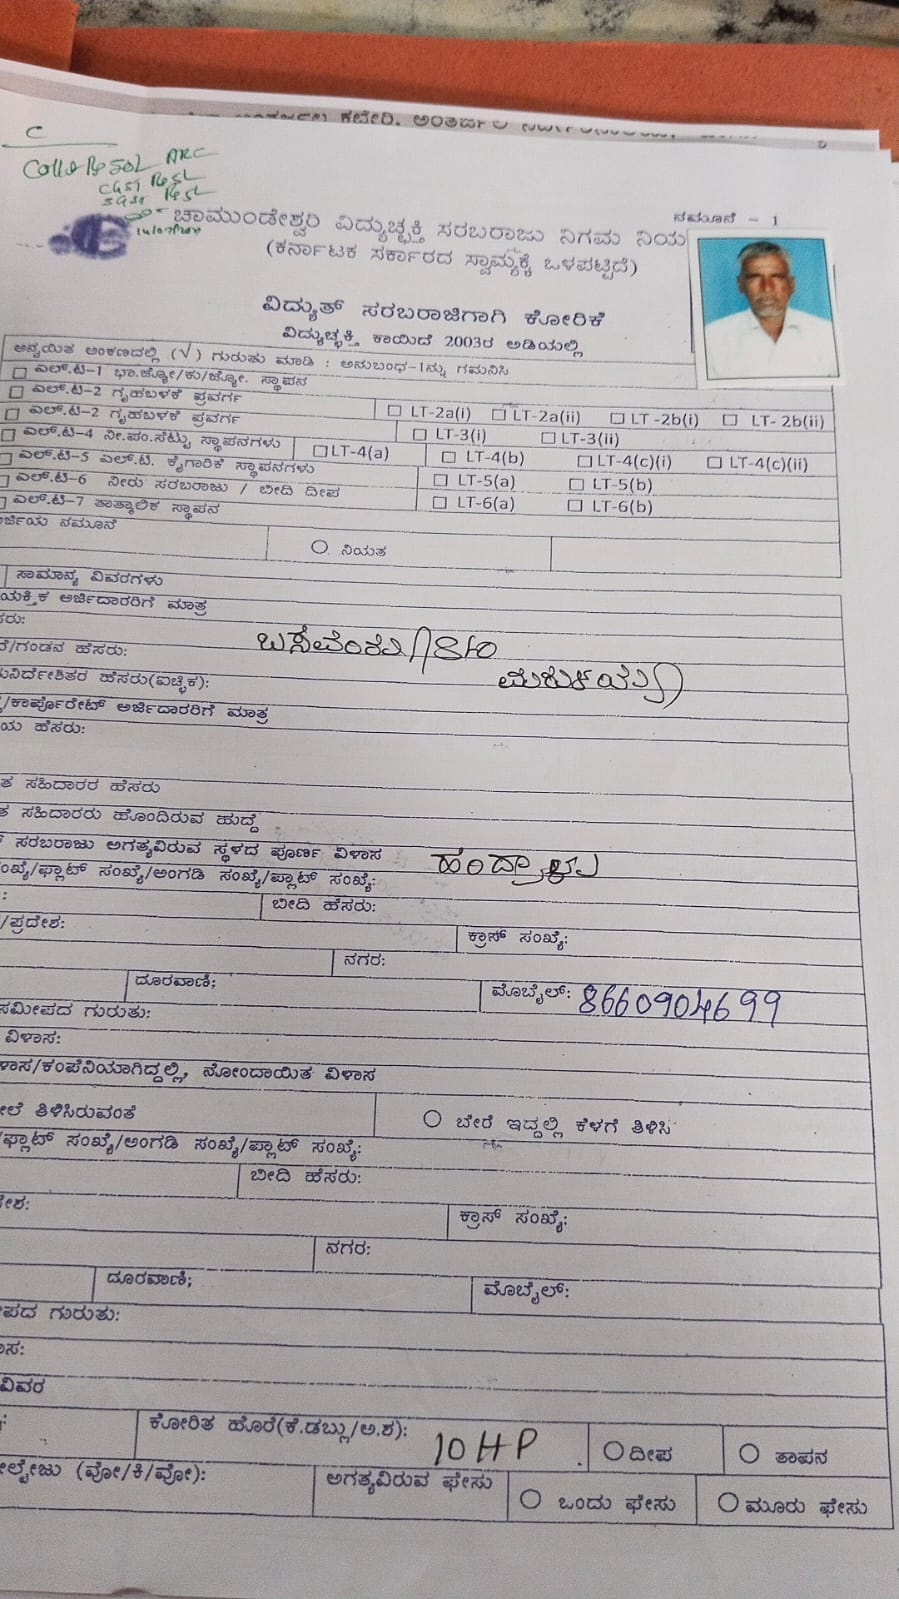 C
ARC
CGST
SGST
ನಮೂನೆ - 1
ಚಾಮುಂಡೇಶ್ವರಿ ವಿದ್ಯುಚ್ಛಕ್ತಿ ಸರಬರಾಜು ನಿಗಮ ನಿಯ
(ಕರ್ನಾಟಕ ಸರ್ಕಾರದ ಸ್ವಾಮ್ಯಕ್ಕೆ ಒಳಪಟ್ಟಿದೆ)
ವಿದ್ಯುತ್ ಸರಬರಾಜಿಗಾಗಿ ಕೋರಿಕೆ
ವಿದ್ಯುಚ್ಛಕ್ತಿ ಕಾಯಿದೆ 2003ರ ಅಡಿಯಲ್ಲಿ
ಅನ್ವಯಿತ ಅಂಕಣದಲ್ಲಿ (√) ಗುರುತು ಮಾಡಿ : ಅನುಬಂಧ-1ನ್ನು ಗಮನಿಸಿ
ಎಲ್.ಟಿ-1 ಭಾ.ಜ್ಯೋ/ಕು/ಜ್ಯೋ. ಸ್ಥಾಪನ
ಎಲ್.ಟಿ-2 ಗೃಹಬಳಕೆ ಪ್ರವರ್ಗ LT-2a(i) LT-2a(ii) LT -2b(i) LT- 2b(ii)
ಎಲ್.ಟಿ-2 ಗೃಹಬಳಕೆ ಪ್ರವರ್ಗ LT-3(i) LT-3(ii)
ಎಲ್.ಟಿ-4 ನೀ.ಪಂ.ಸೆಟ್ಟು ಸ್ಥಾಪನಗಳು LT-4(a) LT-4(b) LT-4(c)(i) LT-4(c)(ii)
ಎಲ್.ಟಿ-5 ಎಲ್.ಟಿ. ಕೈಗಾರಿಕೆ ಸ್ಥಾಪನಗಳು LT-5(a) LT-5(b)
ಎಲ್.ಟಿ-6 ನೀರು ಸರಬರಾಜು / ಬೀದಿ ದೀಪ LT-6(a) LT-6(b)
ಎಲ್.ಟಿ-7 ತಾತ್ಕಾಲಿಕ ಸ್ಥಾಪನ
ರ್ಜಿಯ ನಮೂನೆ
ನಿಯತ
ಸಾಮಾನ್ಯ ವಿವರಗಳು
ಯಕ್ತಿಕ ಅರ್ಜಿದಾರರಿಗೆ ಮಾತ್ರ
ಸರು:
ರೆ/ಗಂಡನ ಹೆಸರು:
ುನಿರ್ದೇಶಿತರ ಹೆಸರು(ಐಚ್ಛಿಕ):
/ಕಾರ್ಪೊರೇಟ್ ಅರ್ಜಿದಾರರಿಗೆ ಮಾತ್ರ
ಯ ಹೆಸರು:
ತ ಸಹಿದಾರರ ಹೆಸರು
ತ ಸಹಿದಾರರು ಹೊಂದಿರುವ ಹುದ್ದೆ
ಸರಬರಾಜು ಅಗತ್ಯವಿರುವ ಸ್ಥಳದ ಪೂರ್ಣ ವಿಳಾಸ
ಂಖ್ಯೆ/ಫ್ಲಾಟ್ ಸಂಖ್ಯೆ/ಅಂಗಡಿ ಸಂಖ್ಯೆ/ಪ್ಲಾಟ್ ಸಂಖ್ಯೆ:
: ಬೀದಿ ಹೆಸರು:
/ಪ್ರದೇಶ: ಕ್ರಾಸ್ ಸಂಖ್ಯೆ:
ನಗರ:
ದೂರವಾಣಿ; ಮೊಬೈಲ್: 8660904699
ಸಮೀಪದ ಗುರುತು:
ವಿಳಾಸ:
ಳಾಸ/ಕಂಪೆನಿಯಾಗಿದ್ದಲ್ಲಿ, ನೋಂದಾಯಿತ ವಿಳಾಸ
ೇಲೆ ತಿಳಿಸಿರುವಂತೆ ಬೇರೆ ಇದ್ದಲ್ಲಿ ಕೆಳಗೆ ತಿಳಿಸಿ
/ಫ್ಲಾಟ್ ಸಂಖ್ಯೆ/ಅಂಗಡಿ ಸಂಖ್ಯೆ/ಪ್ಲಾಟ್ ಸಂಖ್ಯೆ:
ಬೀದಿ ಹೆಸರು:
ೇಶ: ಕ್ರಾಸ್ ಸಂಖ್ಯೆ:
ನಗರ:
ದೂರವಾಣಿ; ಮೊಬೈಲ್:
ಪದ ಗುರುತು:
ಾಸ:
ವಿವರ
ಕೋರಿತ ಹೊರೆ(ಕೆ.ಡಬ್ಲು/ಅ.ಶ): 10 HP ದೀಪ ತಾಪನ
ೋಲ್ಟೇಜು (ವೋ/ಕಿ/ವೋ): ಅಗತ್ಯವಿರುವ ಫೇಸು ಒಂದು ಫೇಸು ಮೂರು ಫೇಸು